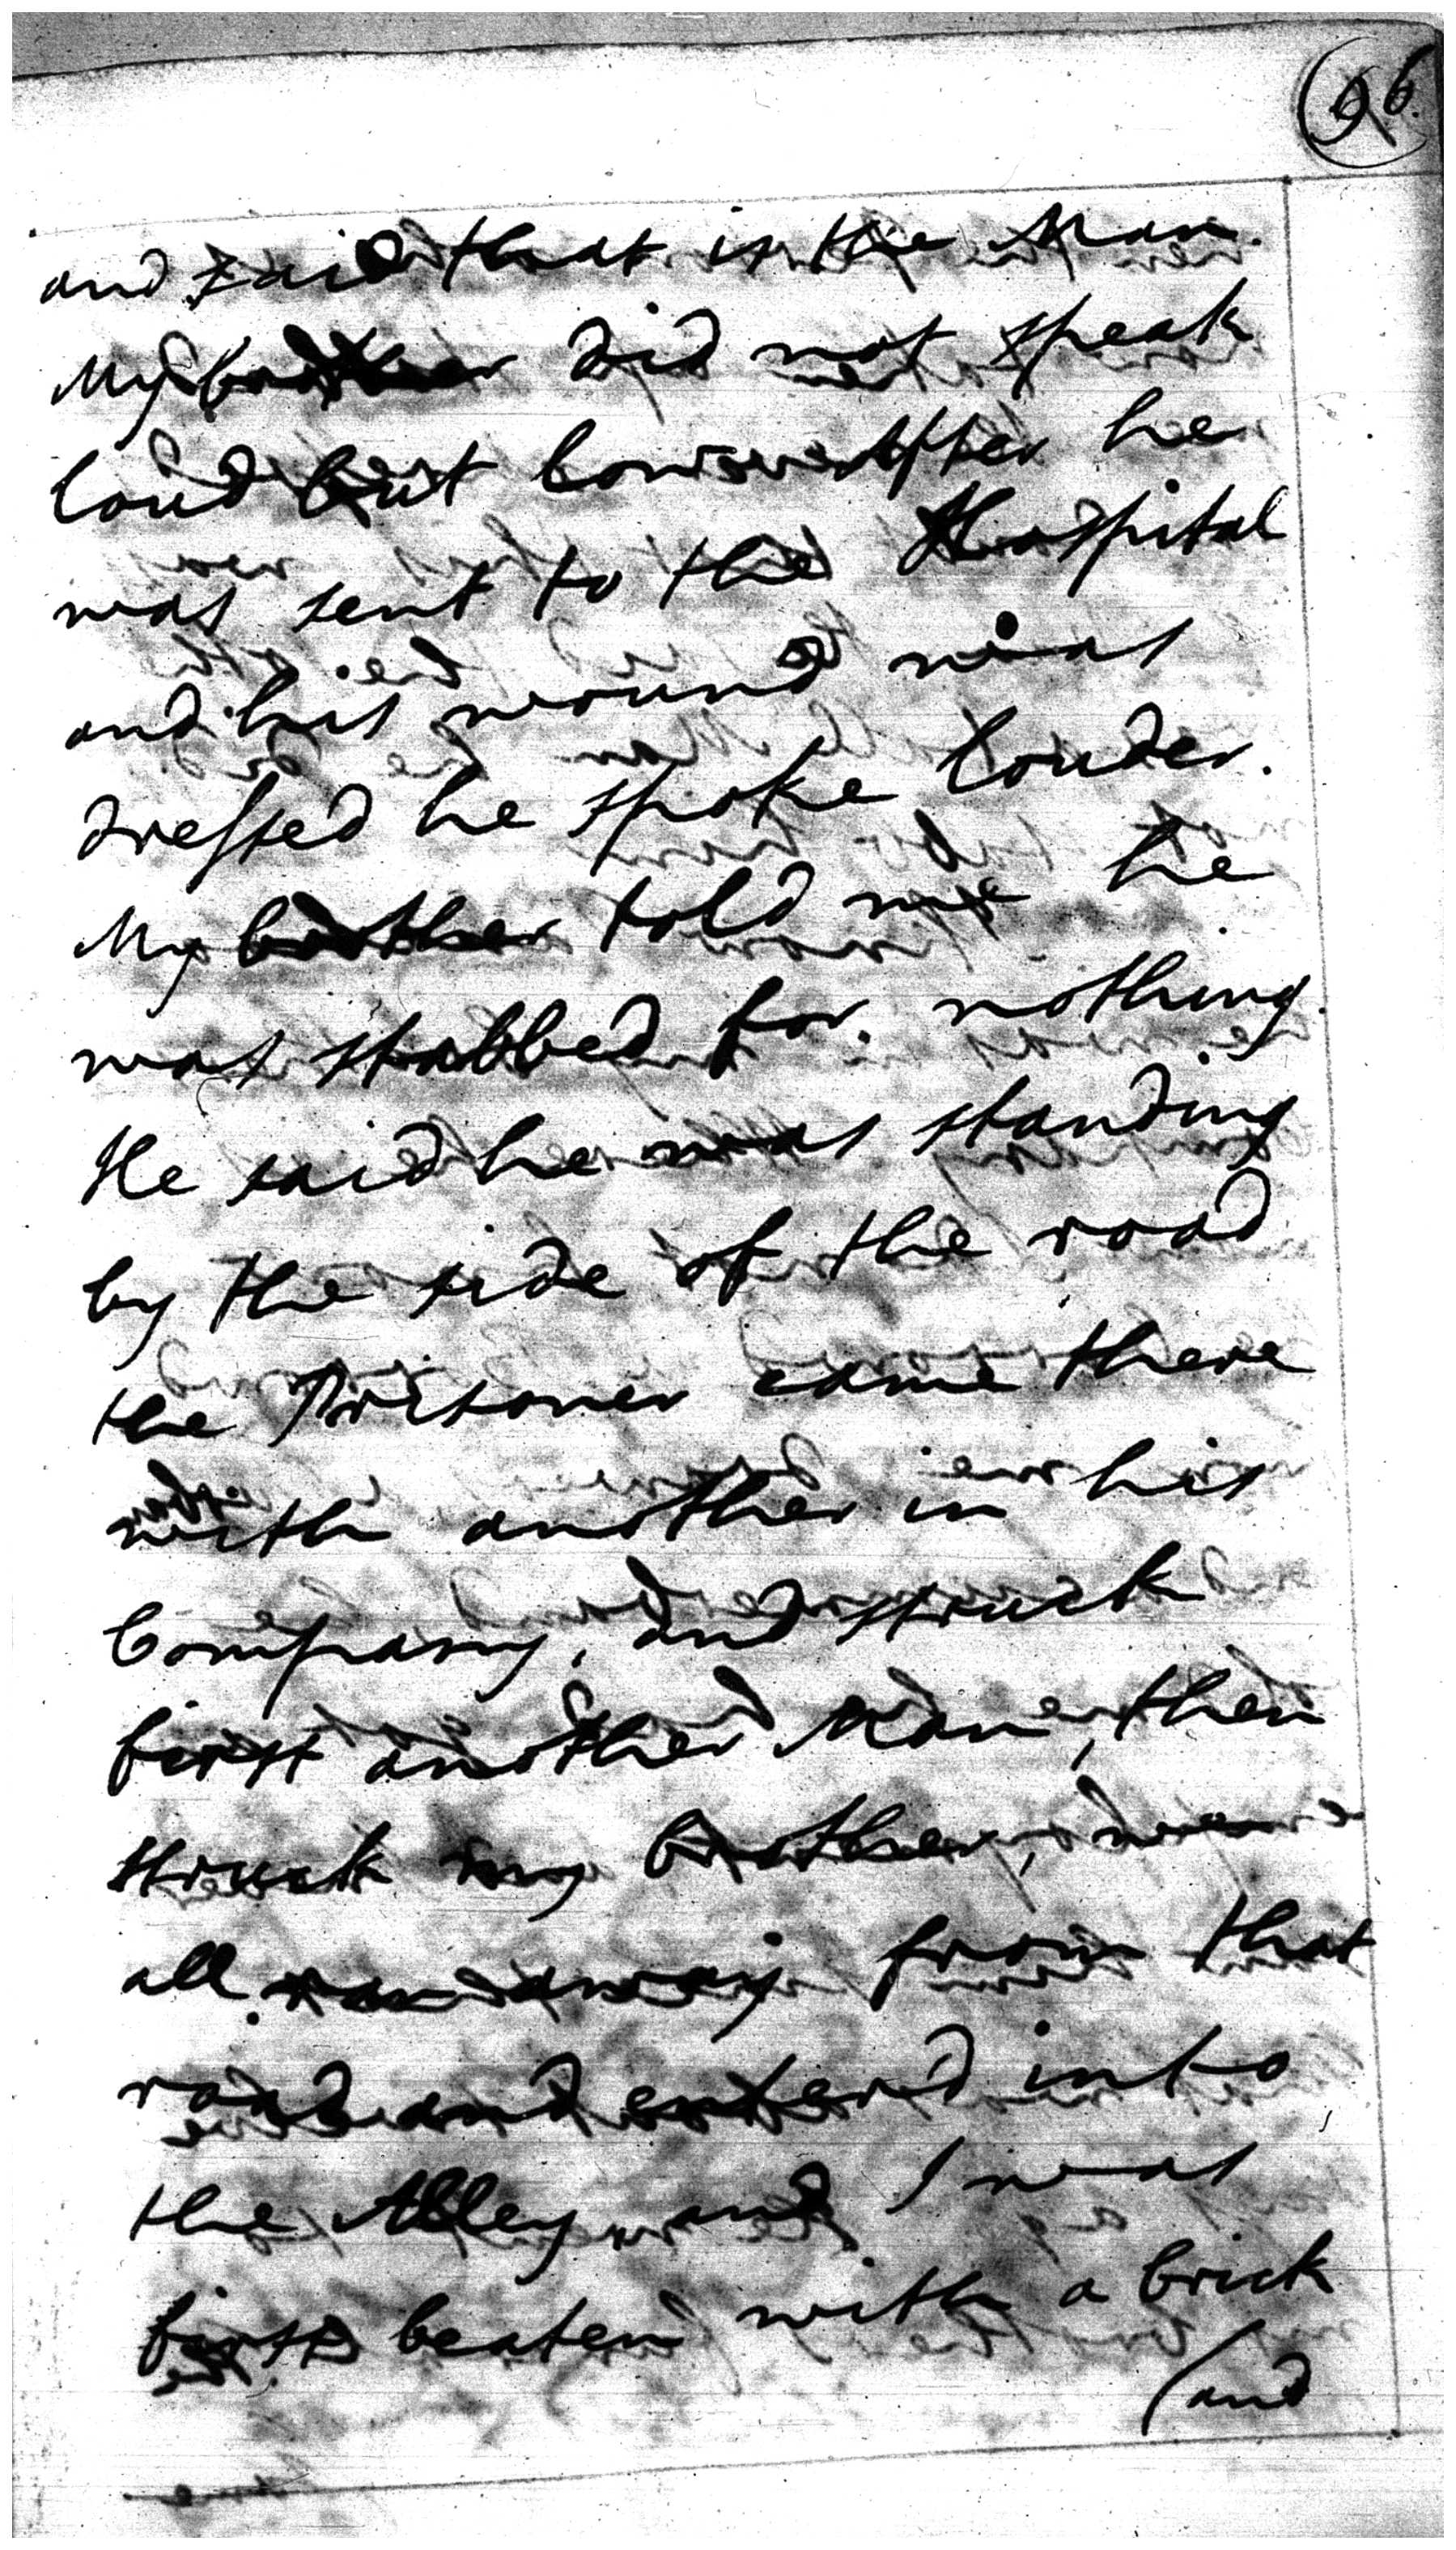 96.
and said that is the Man.
My brother did not speak
loud but low After he
was sent to the Hospital
and his wound was
dressed he spoke louder.
My brother told me he
was stabbed for nothing.
He said he was standing
by the side of the road
the Prisoner came there
with another in his
Company, and struck
first another Man, then
struck my brother, we
all ran away from that
road and entered into
the Alley and I was
first beaten with a brick
(and